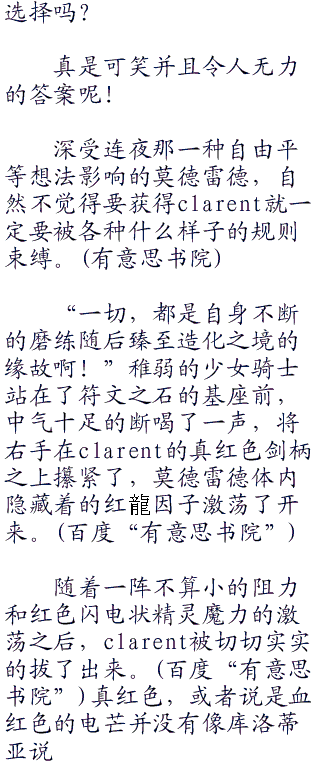 选择吗?
真是可笑并且令人无力
的答案呢!
深受连夜那一种自由平
等想法影响的莫德雷德, 自
然不觉得要获得clarent就一
定要被各种什么样子的规则
束缚。(有意思书院)
“一切, 都是自身不断
的磨练随后臻至造化之境的
缘故啊! ”稚弱的少女骑士
站在了符文之石的基座前,
中气十足的断喝了一声, 将
右手在clarent的真红色剑柄
之上攥紧了, 莫德雷德体内
隐藏着的红龍因子激荡了开
来。(百度“有意思书院”)
随着一阵不算小的阻力
和红色闪电状精灵魔力的激
荡之后, clarent被切切实实
的拔了出来。(百度“有意思
书院”)真红色, 或者说是血
红色的电芒并没有像库洛蒂
亚说